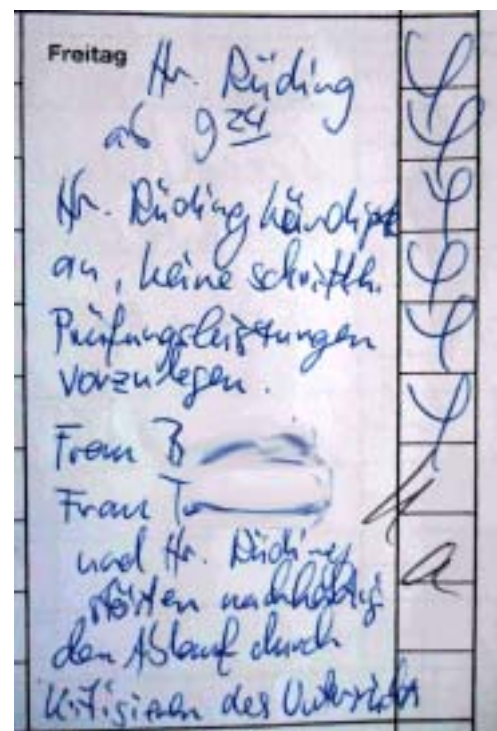 Freitag Hr. Rüding
ab 9 24
Hr. Rüding kündigt
an, keine schriftl.
Prüfungsleistungen
vorzulegen.
Frau B
Frau T
und Hr. Rüding
störten nachhaltig
den Ablauf durch
Kritisieren des Unterrichts